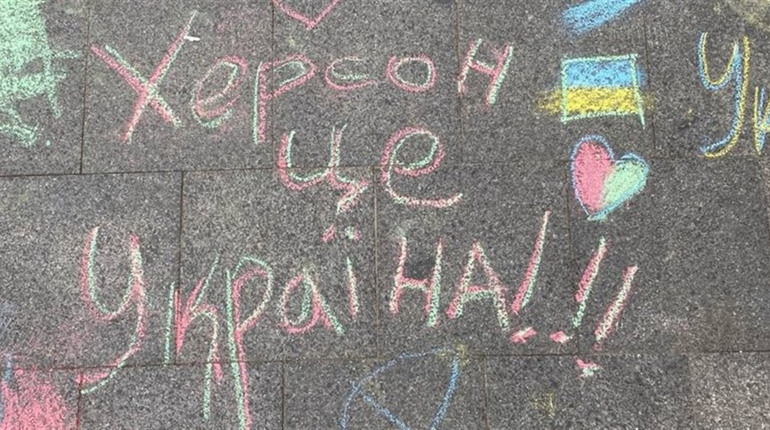 Херсон
це
Україна!!!